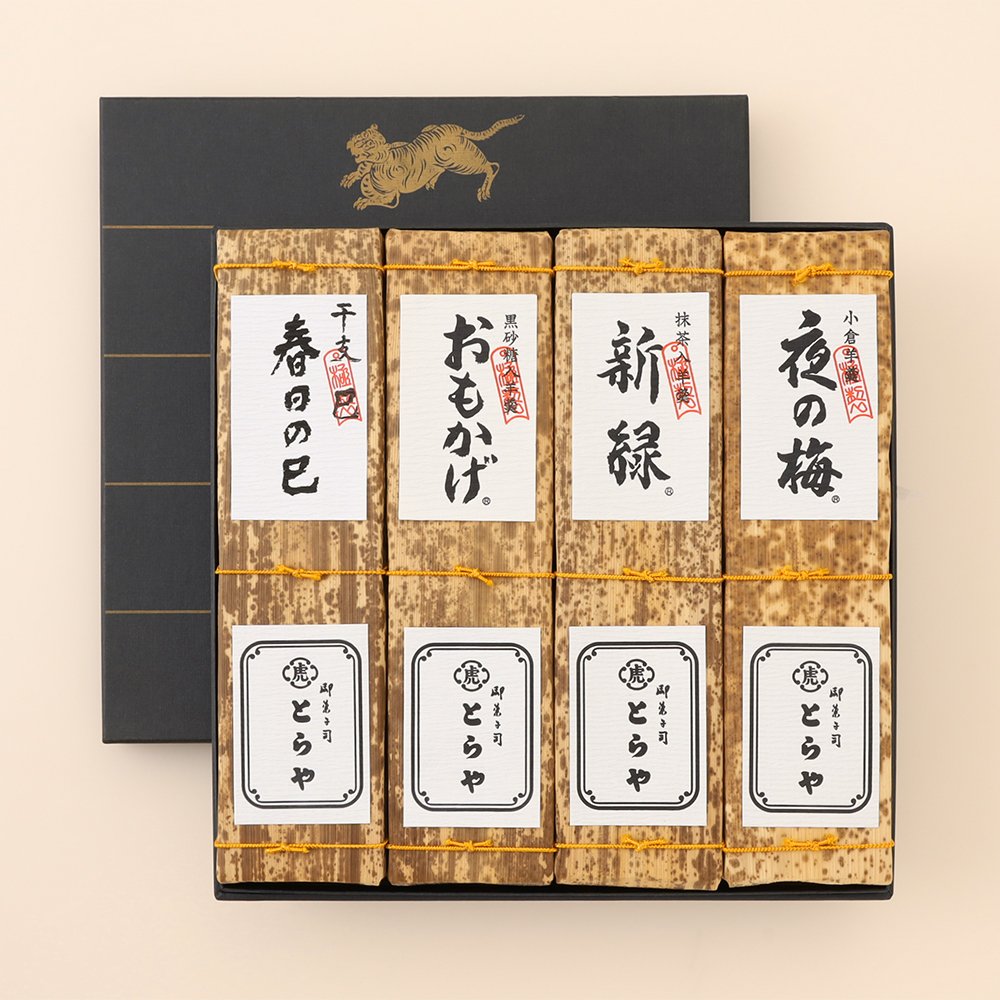 小倉羊羹
夜の梅®
抹茶入羊羹
新緑®
黒砂糖入羊羹
おもかげ®
干支 巳
春日の巳
虎
御菓子司
とらや
虎
御菓子司
とらや
虎
御菓子司
とらや
虎
御菓子司
とらや